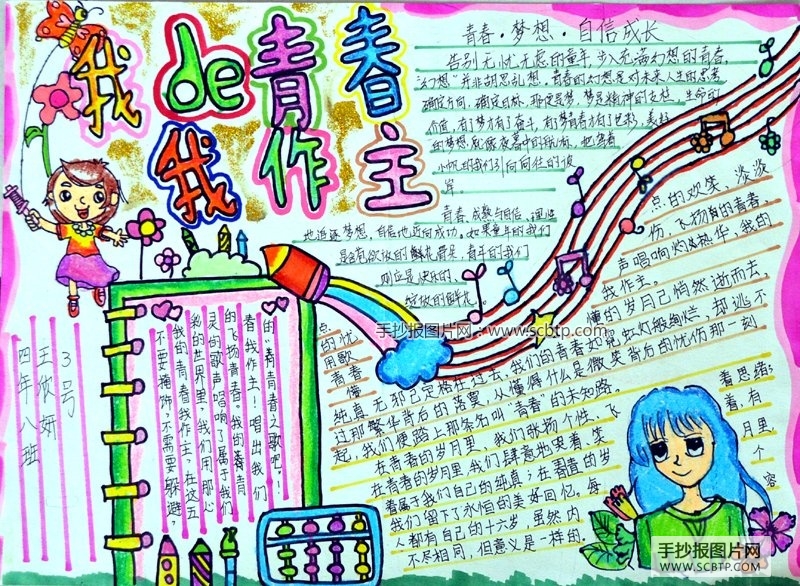 我de青春
我作主
青春·梦想·自信成长
告别无忧无虑的童年,步入充满幻想的青春,
"幻想"并非胡思乱想,青春的幻想是对未来人生的思考
确定方向,确定目标,
梦是精神的支柱,生命的
价值,有了梦才有了奋斗,有了梦青春才有了色彩,美好
的梦想,就像夜幕中的航标,也带着
小小的我们引向向往的彼
岸。
青春,成熟与自信、理想
也追逐梦想,自信也迈向成功,如果童年的我们
是含苞欲放的鲜花骨朵,青年的我们
则应是快乐的、
绽放的鲜花。
点的欢笑、淡淡
伤,飞扬着的青春,
声唱响灼灼热华,我的
我作主。
懂的岁月已悄然逝而去,
点
的忧
用歌
青春
懵
纯真无邪已定格在过去,我们的青春如炮火如般绚烂,却逃不
过那繁华背后的落寞,从懂得什么是微笑背后的忧伤那一刻
起,我们便踏上那条名叫"青春"的未知路。
在青春的岁月里,我们张扬个性,飞
在青春的岁月里,我们肆意地哭着、笑
着属于我们自己的纯真;在青春的岁
我们留下了永恒的美好回忆。每
人都有自己的十六岁,虽然内
不尽相同,但意义是一样的。
看思绪;
着,有
月里,
个
容
的"青青青春之歌吧。
春我作主!唱出我们
的飞扬青春。我的青青
灵的歌声唱响了属于我们
彩的世界里,我们用那心
我的青春我作主?在这五
不要掩饰,不需要躲避?
3号
王欣妍
四年八班
手抄报图片网:www.scbtp.com
手抄报图片网
WWW.SCBTP.COM